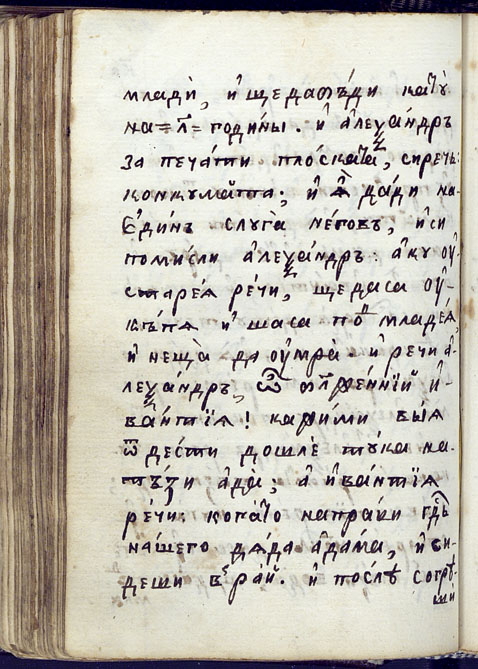 млади̇̀, и҆ ще да ѿъ́ди като̀
на = л҃ = годи́ны. и҆ а҆леѯа́ндръ
за печа́ти пло́ската̀, сиречъ:
конкума́та; и҆ ѧ҆̀ да́ди на
Е҆ди́нъ слуга̀ не́говъ, и҆ си
помисли а҆леѯа́ндръ: а҆ку оу҆-
старе́ѧ ре́чи, ще да са оу҆-
кѣпѧ и҆ ша са по̀ младе́ѧ,
и҆ не́ща̀ да оу҆мра̀. и҆ речи а҆-
леѯа́ндръ, ѿ и҆-
ва́нтїѧ! кажи́ ми выѧ
ѿ де́сти дошлѐ ту́ка на
тъ́зи а҆да̀; а҆ и҆ва́нтїѧ
ре́чи: кога́то напра́ви гдⷭ҇ь
на́шего дѧ́да а҆да́ма, и҆ ви-
деши въ ра́й. и҆ по́слѣ согрѣ-
ши